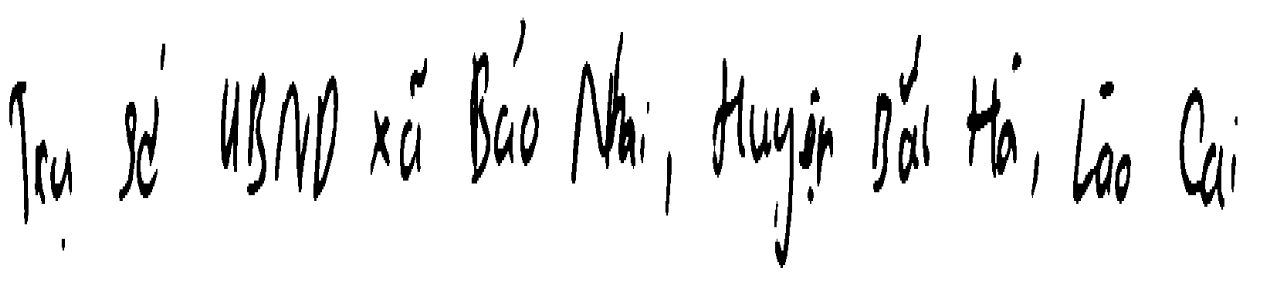 Trụ sở UBND xã Bảo Nhai, Huyện Bắc Hà, Lào Cai